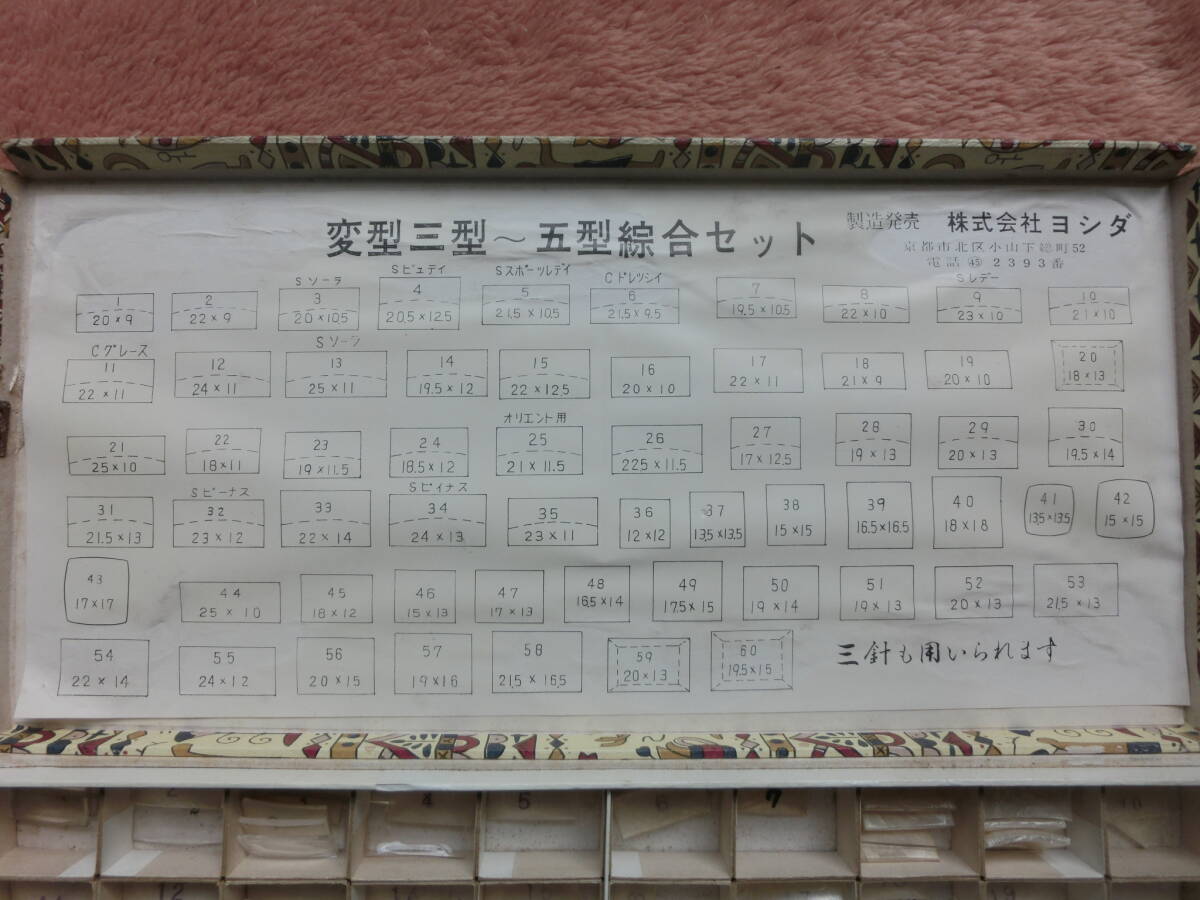 変型三型～五型綜合セット
製造発売 株式会社ヨシダ
京都市北区小山下総町52
電話 ㊺ 2393番
Sソーラ Sビュティ Sスポーツレデイ Cドレツシイ Sレデー
1 2 3 4 5 6 7 8 9 10
20×9 22×9 20×10.5 20.5×12.5 21.5×10.5 21.5×9.5 19.5×10.5 22×10 23×10 21×10
Cグレース Sソーラ
11 12 13 14 15 16 17 18 19 20
22×11 24×11 25×11 19.5×12 22×12.5 20×10 22×11 21×9 20×10 18×13
オリエント用
21 22 23 24 25 26 27 28 29 30
25×10 18×11 19×11.5 18.5×12 21×11.5 22.5×11.5 17×12.5 19×13 20×13 19.5×14
Sビーナス Sビイナス
31 32 33 34 35 36 37 38 39 40 41 42
21.5×13 23×12 22×14 24×13 23×11 12×12 13.5×13.5 15×15 16.5×16.5 18×18 13.5×13.5 15×15
43 44 45 46 47 48 49 50 51 52 53
17×17 25×10 18×12 15×13 17×13 16.5×14 17.5×15 19×14 19×13 20×13 21.5×13
54 55 56 57 58 59 60
22×14 24×12 20×15 19×16 21.5×16.5 20×13 19.5×15
三針も用いられます
2 4 5 6 7 10
12